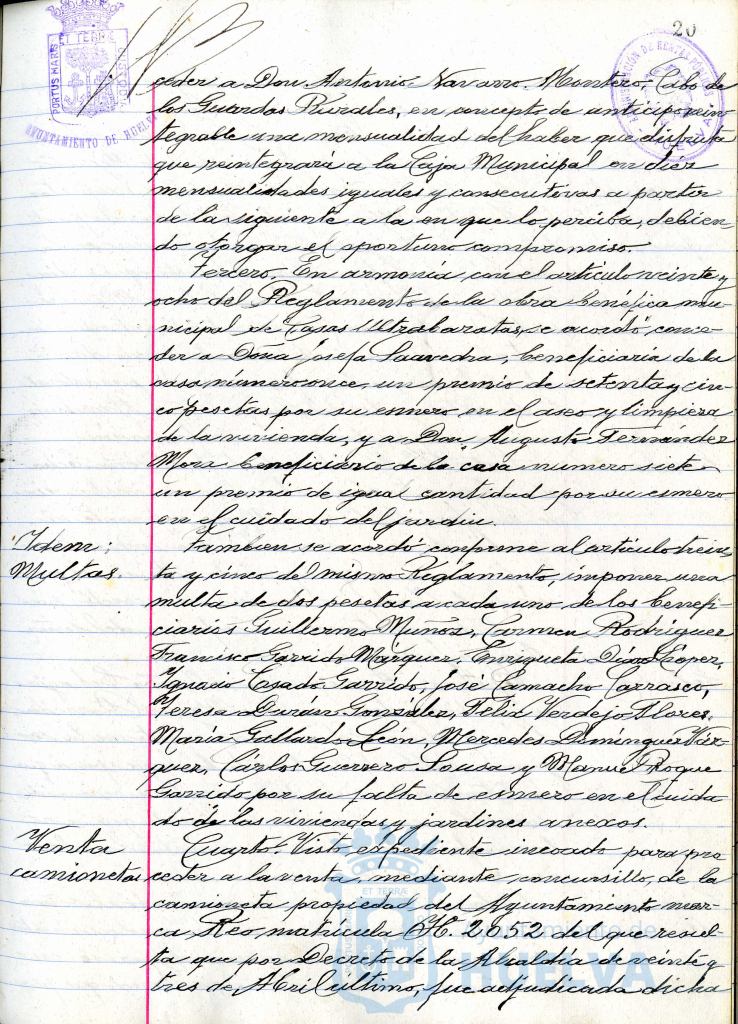 20
PORTUS MARIS
ET TERRÆ
CUSTODIA
AYUNTAMIENTO DE HUELVA
ceder a Don Antonio Navarro Montero, Cabo de
los Guardas Rurales, en concepto de anticipo rein
tegrable una mensualidad del haber que disfruta
que reintegrará a la Caja Municipal en diéz
mensualidades iguales y consecutivas a partir
de la siguiente a la en que lo perciba, debien-
do otorgar el oportuno compromiso.
Tercero. En armonía con el artículo veinte y
ocho del Reglamento de la obra benéfica mu-
nicipal de Casas Ultrabaratas, se acordó, conce-
der a Doña Josefa Saavedra, beneficiaria de la
casa número once, un premio de setenta y cin-
co pesetas por su esmero en el aseo y limpieza
de la vivienda, y a Don Augusto Fernández
beneficiario de la casa numero siete
un premio de igual cantidad por su esmero
en el cuidado del jardin.
Idem:
Multas.
Tambien se acordó conforme al artículo trein-
ta y cinco del mismo Reglamento, imponer una
multa de dos pesetas a cada uno de los benefi-
ciarios Guillermo Muñoz, Carmen Rodríguez
Francisco Garrido Márquez, Enriqueta Díaz López,
Ignacio Casado Garrido, José Camacho Carrasco,
Teresa Durán González, Felix Verdejo Flores,
María Gallardo León, Mercedes Domínguez Váz-
quez, Carlos Guerrero Sousa y Manuel Roque
Garrido por su falta de esmero en el cuida
do de las viviendas y jardines anexos.
Venta
camionetas
Cuarto. Visto expediente incoado para pro
ceder a la venta, mediante concursillo, de la
camioneta propiedad del Ayuntamiento mar-
ca Reo, matrícula H. 2052 del que resul-
ta que por Decreto de la Alcaldía de veinte y
tres de Abril último, fue adjudicada dicha
ET TERRÆ
Ayuntamiento de
HUELVA